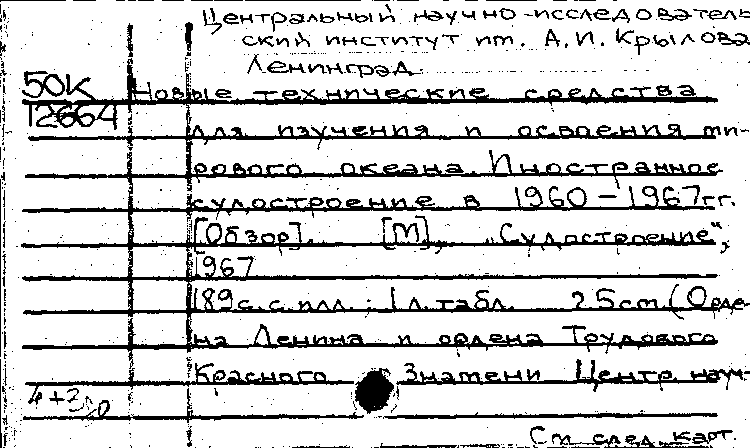 Центральный научно-исследователь
ский институт им. А.И. Крылова
Ленинград.
50К
12664
Новые технические средства
для изучения и освоения ми-
рового океана. Иностранное
судостроение в 1960-1967гг.
[Обзор]. [М], „Судостроение",
1967
189с. с илл.; 1 л. табл. 25cm. (Орде-
на Ленина и ордена Трудового
Красного Знамени Центр. науч-
См след. карт.